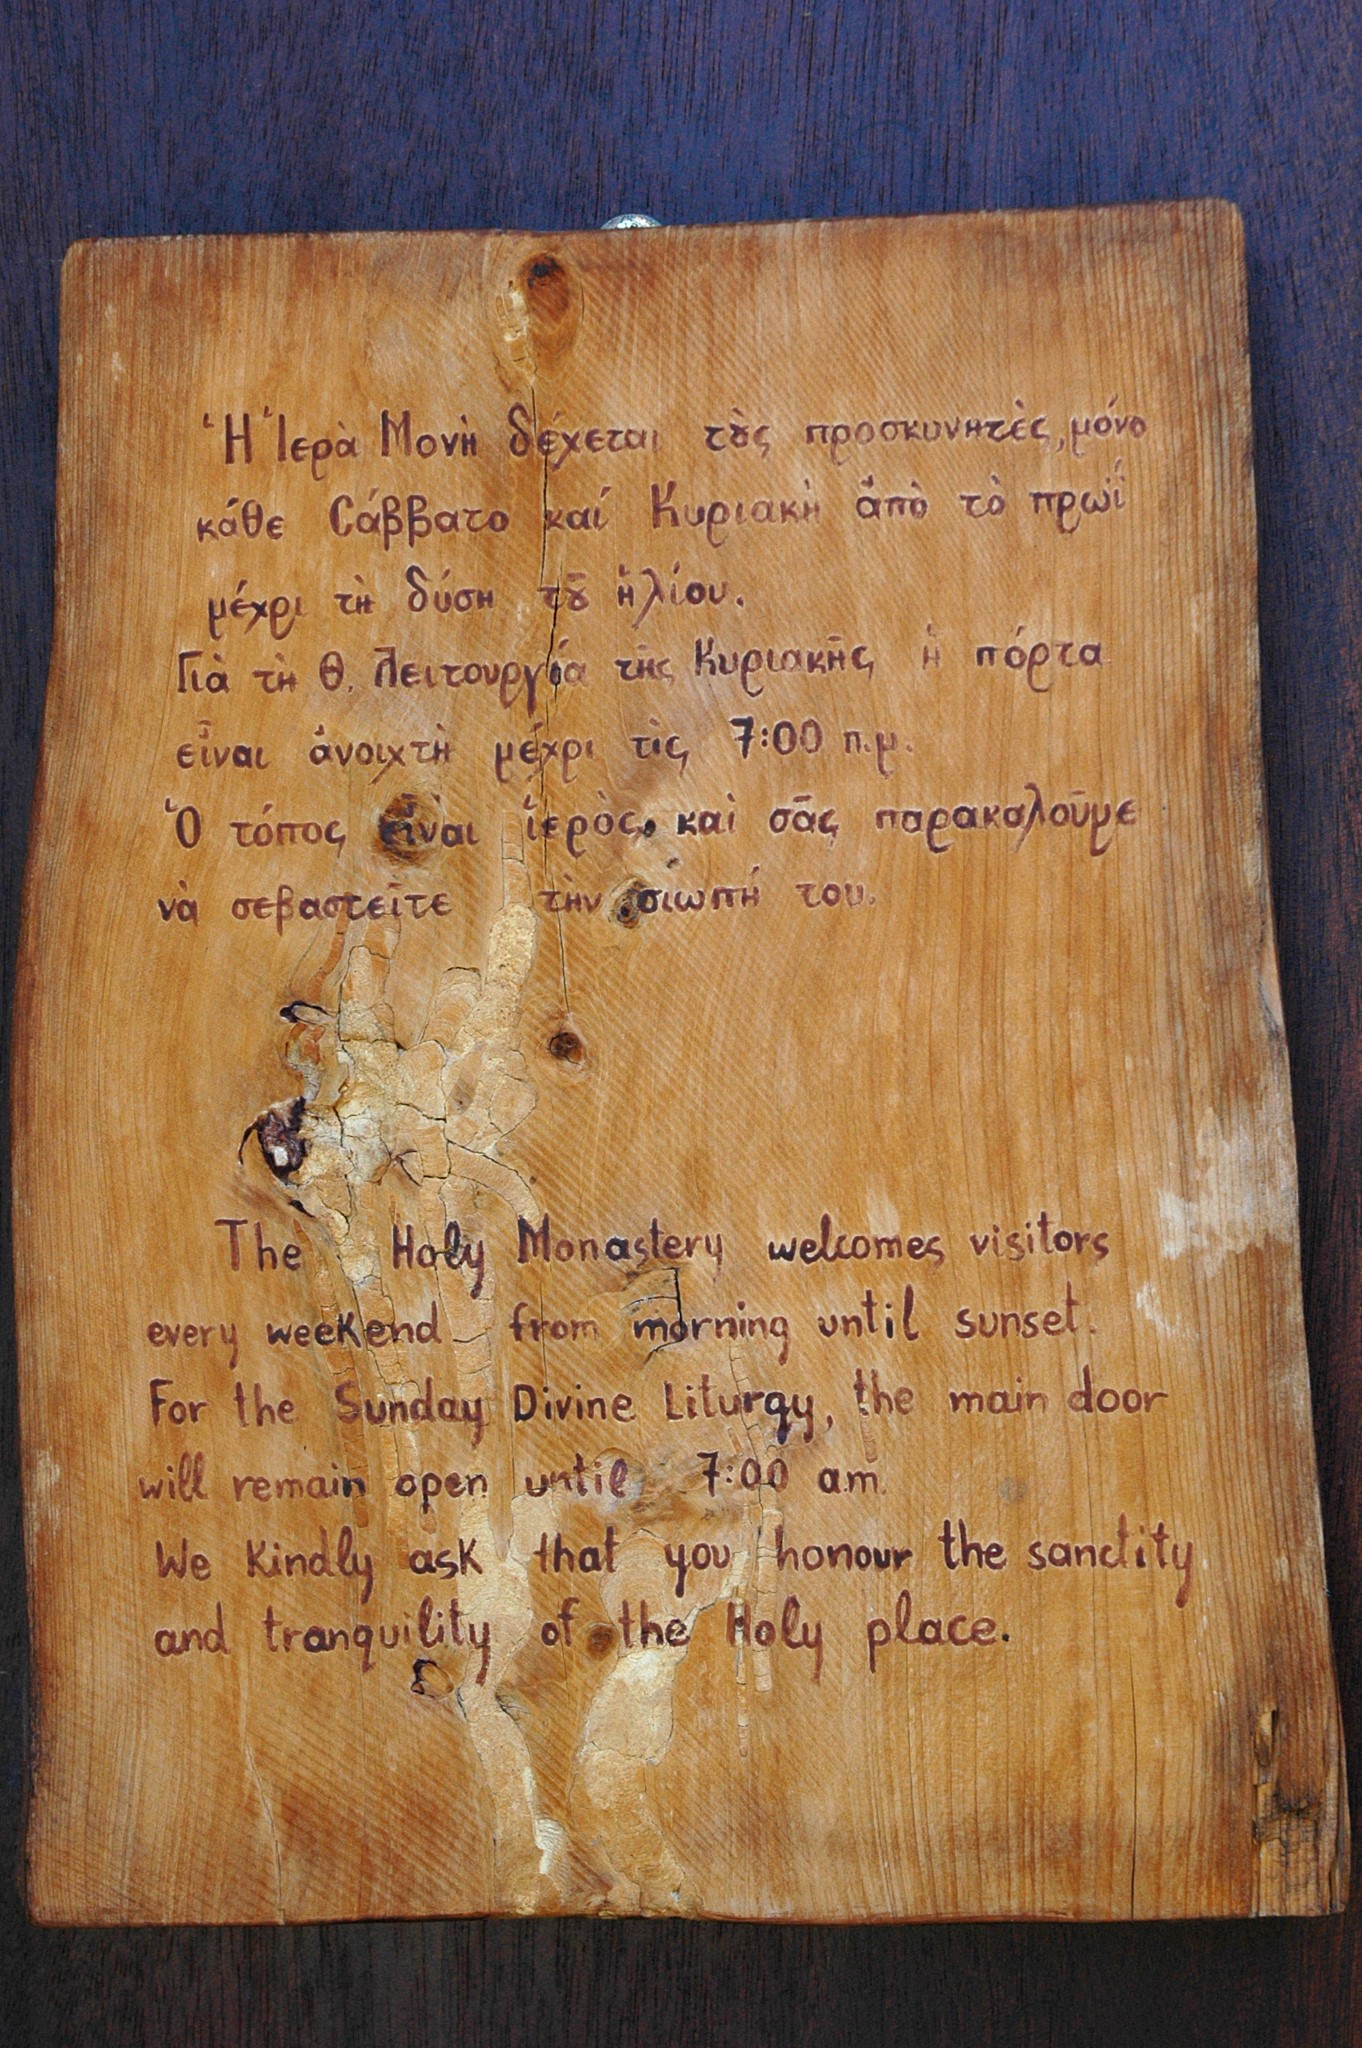 Ἡ Ἱερὰ Μονὴ δέχεται τȣ̀ς προσκυνητὲς, μόνο
κάθε Σάββατο καί Κυριακὴ ἀπὸ τὸ πρωΐ
μέχρι τὴ δύση τȣ͂ ἡλίου.
Γιὰ τὴ Θ. Λειτουργία τῆς Κυριακῆς, ἡ πόρτα
εἶναι ἀνοιχτὴ μέχρι τὶς 7:00 π.μ.
Ὁ τόπος εἶναι ἱερὸς, καὶ σᾶς παρακαλοῦμε
νὰ σεβαστεῖτε τὴν σιωπή του.
The Holy Monastery welcomes visitors
every weekend from morning until sunset.
For the Sunday Divine Liturgy, the main door
will remain open until 7:00 a.m.
We kindly ask that you honour the sanctity
and tranquility of the Holy place.